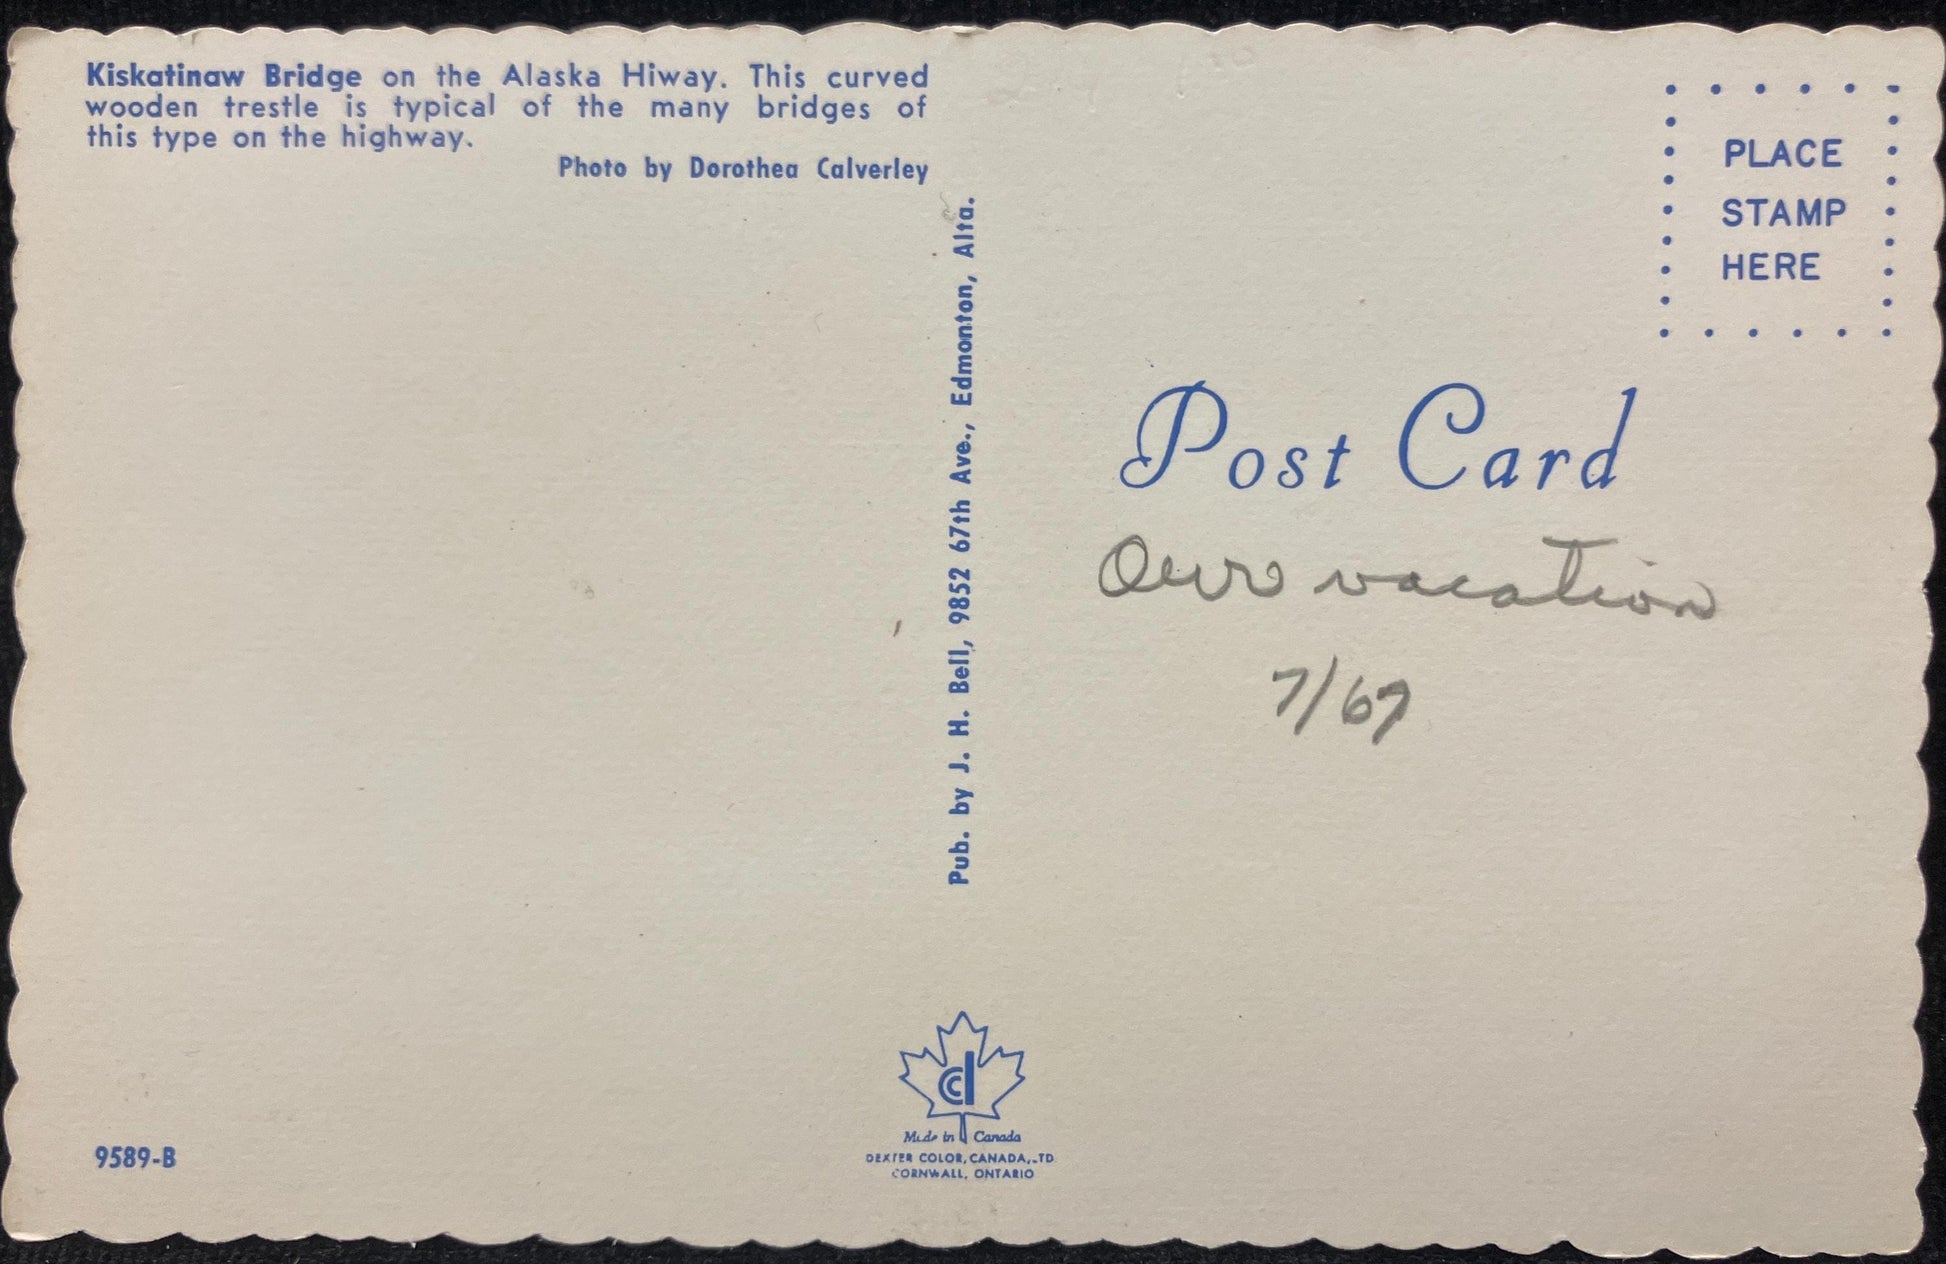 Kiskatinaw Bridge on the Alaska Hiway. This curved
wooden trestle is typical of the many bridges of
this type on the highway.
Photo by Dorothea Calverley
Pub. by J. H. Bell, 9852 67th Ave., Edmonton, Alta.
PLACE
STAMP
HERE
Post Card
Our vacation
7/67
9589-B
cd
Made in Canada
DEXTER COLOR, CANADA, LTD
CORNWALL, ONTARIO